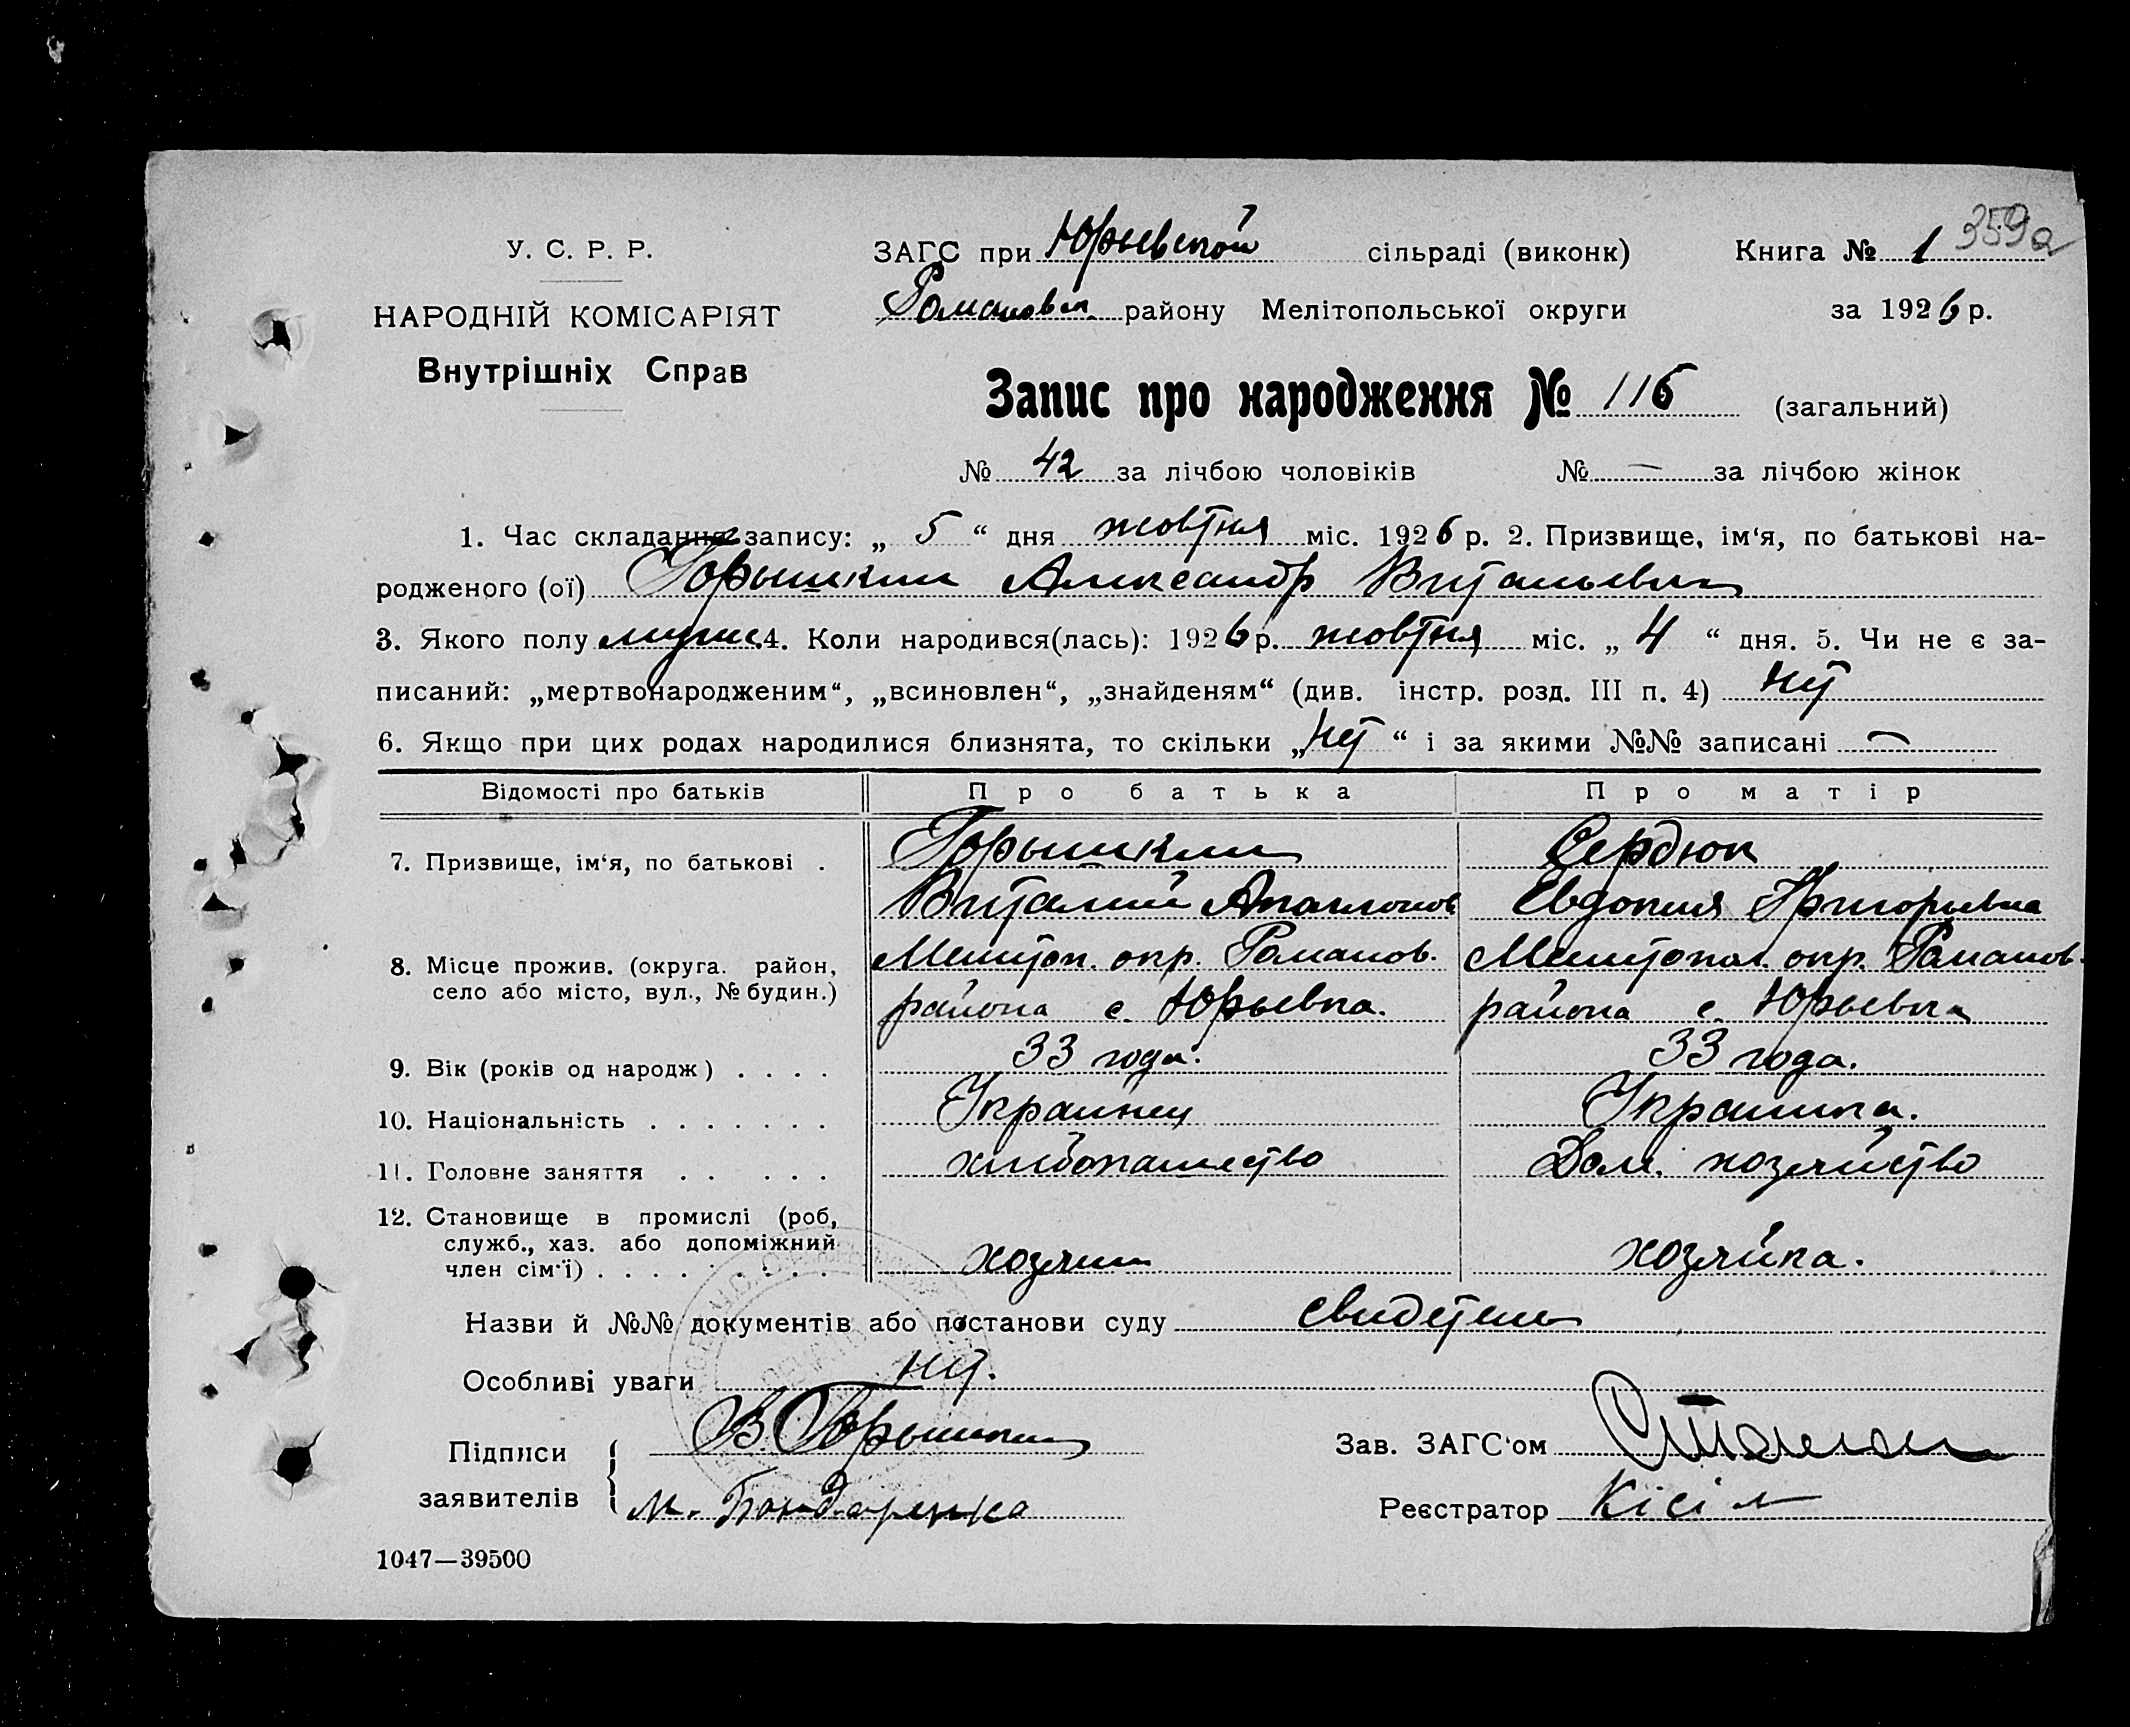 359а
У. С. Р. Р.
НАРОДНІЙ КОМІСАРІЯТ
Внутрішніх Справ
ЗАГС при Юрьевской сільраді (виконк) Книга № 1
Романовск. району Мелітопольської округи за 1926 р.
Запис про народження № 116 (загальний)
№ 42 за лічбою чоловіків № — за лічбою жінок
1. Час складання запису: „ 5 “ дня жовтня міс. 1926 р. 2. Призвище, ім‘я, по батькові на-
родженого (ої) Горышкин Александр Витальевич
3. Якого полу мужс. 4. Коли народився(лась): 1926 р. жовтня міс. „ 4 “ дня. 5. Чи не є за-
писаний: „мертвонародженим“, „всиновлен“, „знайденям“ (див. інстр. розд. III п. 4) ні
6. Якщо при цих родах народилися близнята, то скільки „ “ і за якими №№ записані —
Відомості про батьків Про батька Про матір
7. Призвище, ім‘я, по батькові . Горышкин Сердюк
Виталий Апаллонов Евдокия Григорьевна
8. Місце прожив. (округа. район, Мелитоп. окр. Романов. Мелитопол. окр. Романов.
село або місто, вул., № будин.) района с. Юрьевка. района с. Юрьевка
9. Вік (років од народж) . . . . 33 года. 33 года.
10. Національність . . . . . . . Украинец Украинка.
11. Головне заняття . . . . . хлибопашество Дом. хозяйство
12. Становище в промислі (роб,
служб., хаз. або допоміжний
член сім‘ї) . . . . . . . . . хозяин хозяйка.
Назви й №№ документів або постанови суду свидетели
Особливі уваги
Підписи В. Горышкин Зав. ЗАГС‘ом
заявителів м. Бондаренко Реєстратор Кісіл
1047—39500